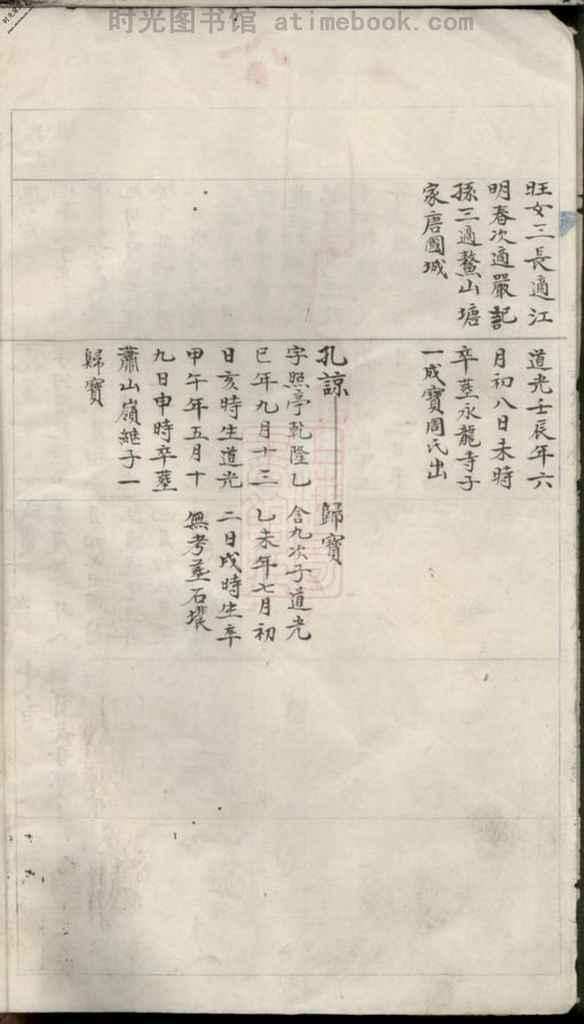 时光图书馆 atimebook.com
旺女三長適江
明春次適嚴記
孫三適鰲山塘
家唐國城
道光壬辰年六
月初八日未時
卒墓永龍寺子
一成寶周氏出
孔諒
字照亭乾隆乙
巳年九月十三
日亥時生道光
甲午年五月十
九日申時卒墓
蕭山嶺継子一
歸寶
歸寶
含九次子道光
乙未年七月初
二日戌時生卒
無考墓石塔